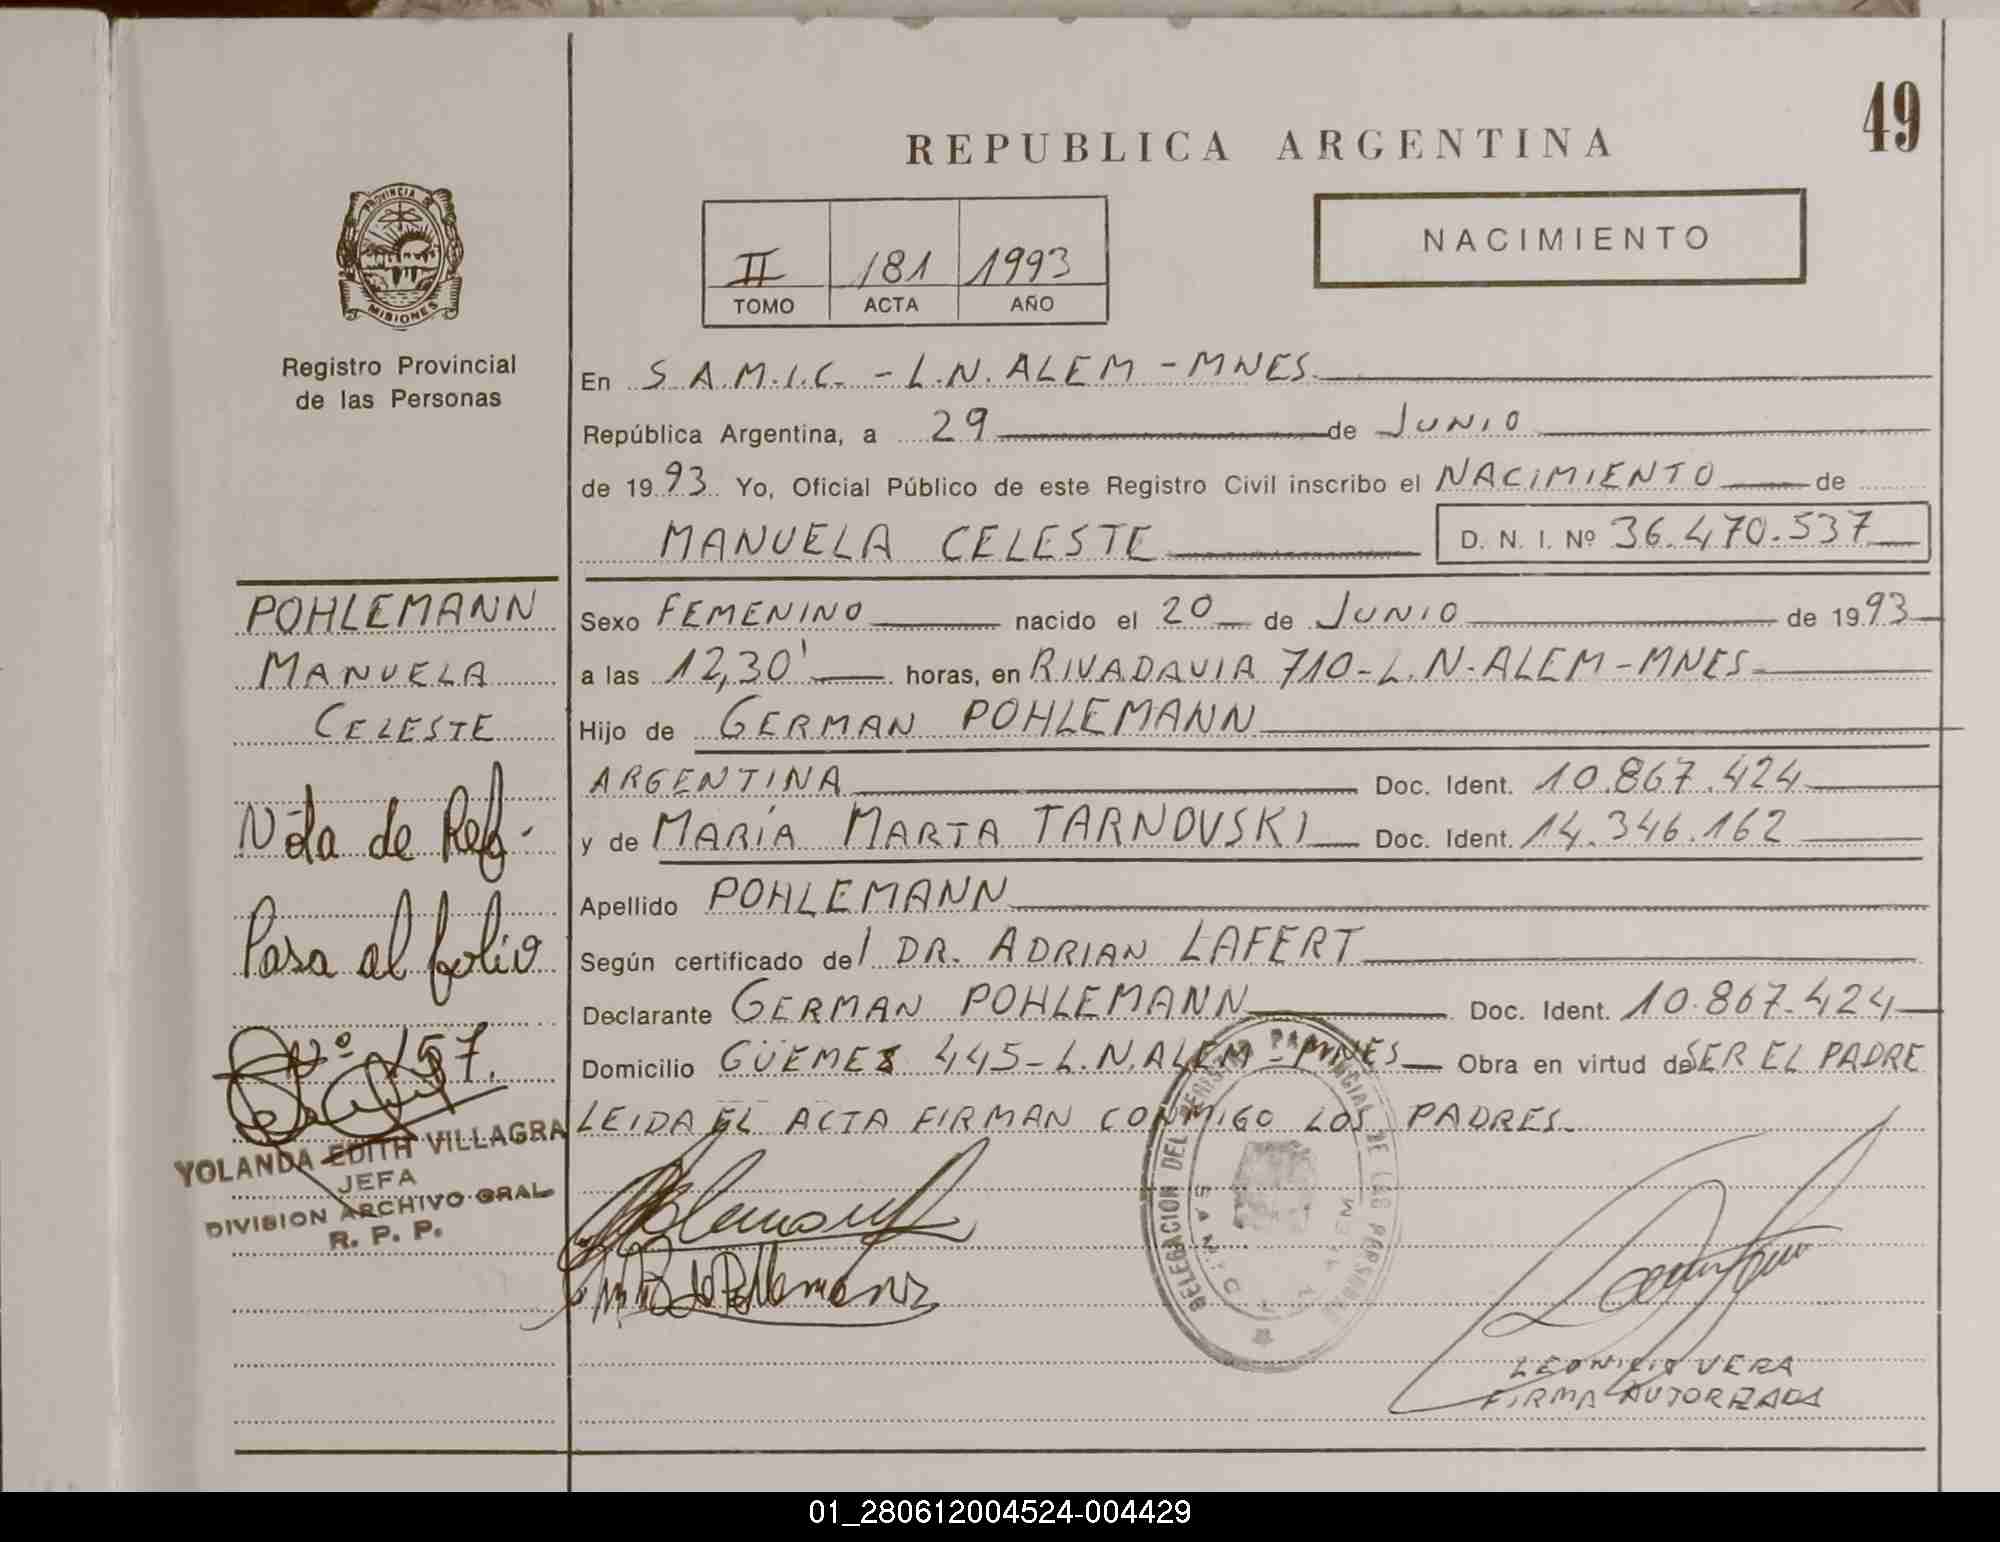 49
REPUBLICA ARGENTINA
PROVINCIA DE
MISIONES
Registro Provincial
de las Personas
II 181 1993
TOMO ACTA AÑO
NACIMIENTO
En S.A.M.I.C. - L.N. ALEM - MNES.
República Argentina, a 29 de JUNIO
de 1993 Yo, Oficial Público de este Registro Civil inscribo el NACIMIENTO de
MANUELA CELESTE D. N. I. Nº 36.470.537
POHLEMANN
MANUELA
CELESTE
Nota de Ref.
Pasa al folio
Nº 157.
YOLANDA EDITH VILLAGRA
JEFA
DIVISION ARCHIVO GRAL
R. P. P.
Sexo FEMENINO nacido el 20 de JUNIO de 1993
a las 12,30' horas, en RIVADAVIA 710 - L.N. ALEM - MNES
Hijo de GERMAN POHLEMANN
ARGENTINA Doc. Ident. 10.867.424
y de MARÍA MARTA TARNOVSKI Doc. Ident. 14.346.162
Apellido POHLEMANN
Según certificado del DR. ADRIAN LAFERT
Declarante GERMAN POHLEMANN Doc. Ident. 10.867.424
Domicilio GÜEMES 445 - L.N. ALEM - MNES Obra en virtud de SER EL PADRE
LEIDA EL ACTA FIRMAN CONMIGO LOS PADRES.
DELEGACION DEL REGISTRO PROVINCIAL DE LAS PERSONAS
VERA
FIRMA AUTORIZADA
01_280612004524-004429